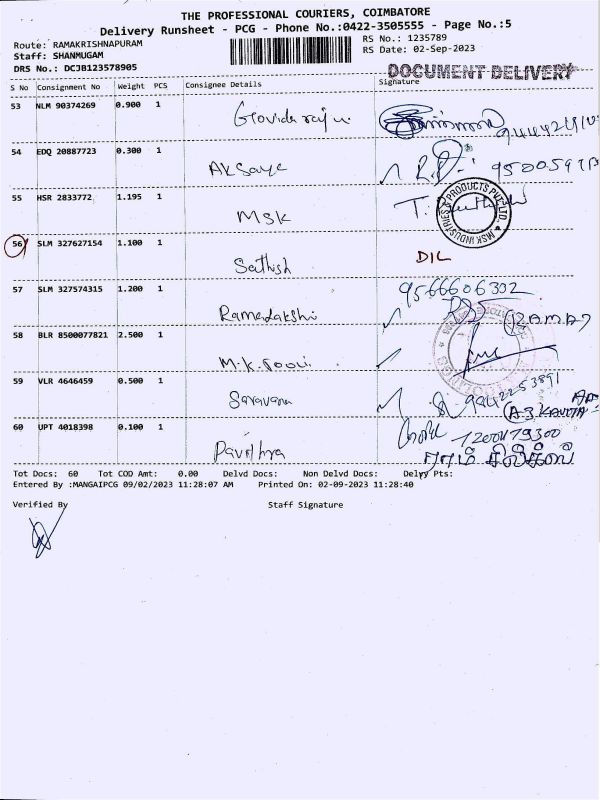 THE PROFESSIONAL COURIERS, COIMBATORE
Delivery Runsheet - PCG - Phone No.:0422-3505555 - Page No.:5
Route: RAMAKRISHNAPURAM RS No.: 1235789
Staff: SHANMUGAM RS Date: 02-Sep-2023
DRS No.: DCJB123578905 DOCUMENT DELIVERY
S No Consignment No Weight PCS Consignee Details Signature
53 NLM 90374269 0.900 1
54 EDQ 20887723 0.300 1
Aksaya
55 HSR 2833772 1.195 1
MSK
MSK INDUSTRIES & PRODUCTS PVT. LTD.
56 SLM 327627154 1.100 1
Sathish D/L
57 SLM 327574315 1.200 1 9566606302
58 BLR 8500077821 2.500 1
59 VLR 4646459 0.500 1 9942253891
Saravana
60 UPT 4018398 0.100 1
Pavithra ராம் சில்க்ஸ்
Tot Docs: 60 Tot COD Amt: 0.00 Delvd Docs: Non Delvd Docs: Delvy Pts:
Entered By :MANGAIPCG 09/02/2023 11:28:07 AM Printed On: 02-09-2023 11:28:40
Verified By Staff Signature